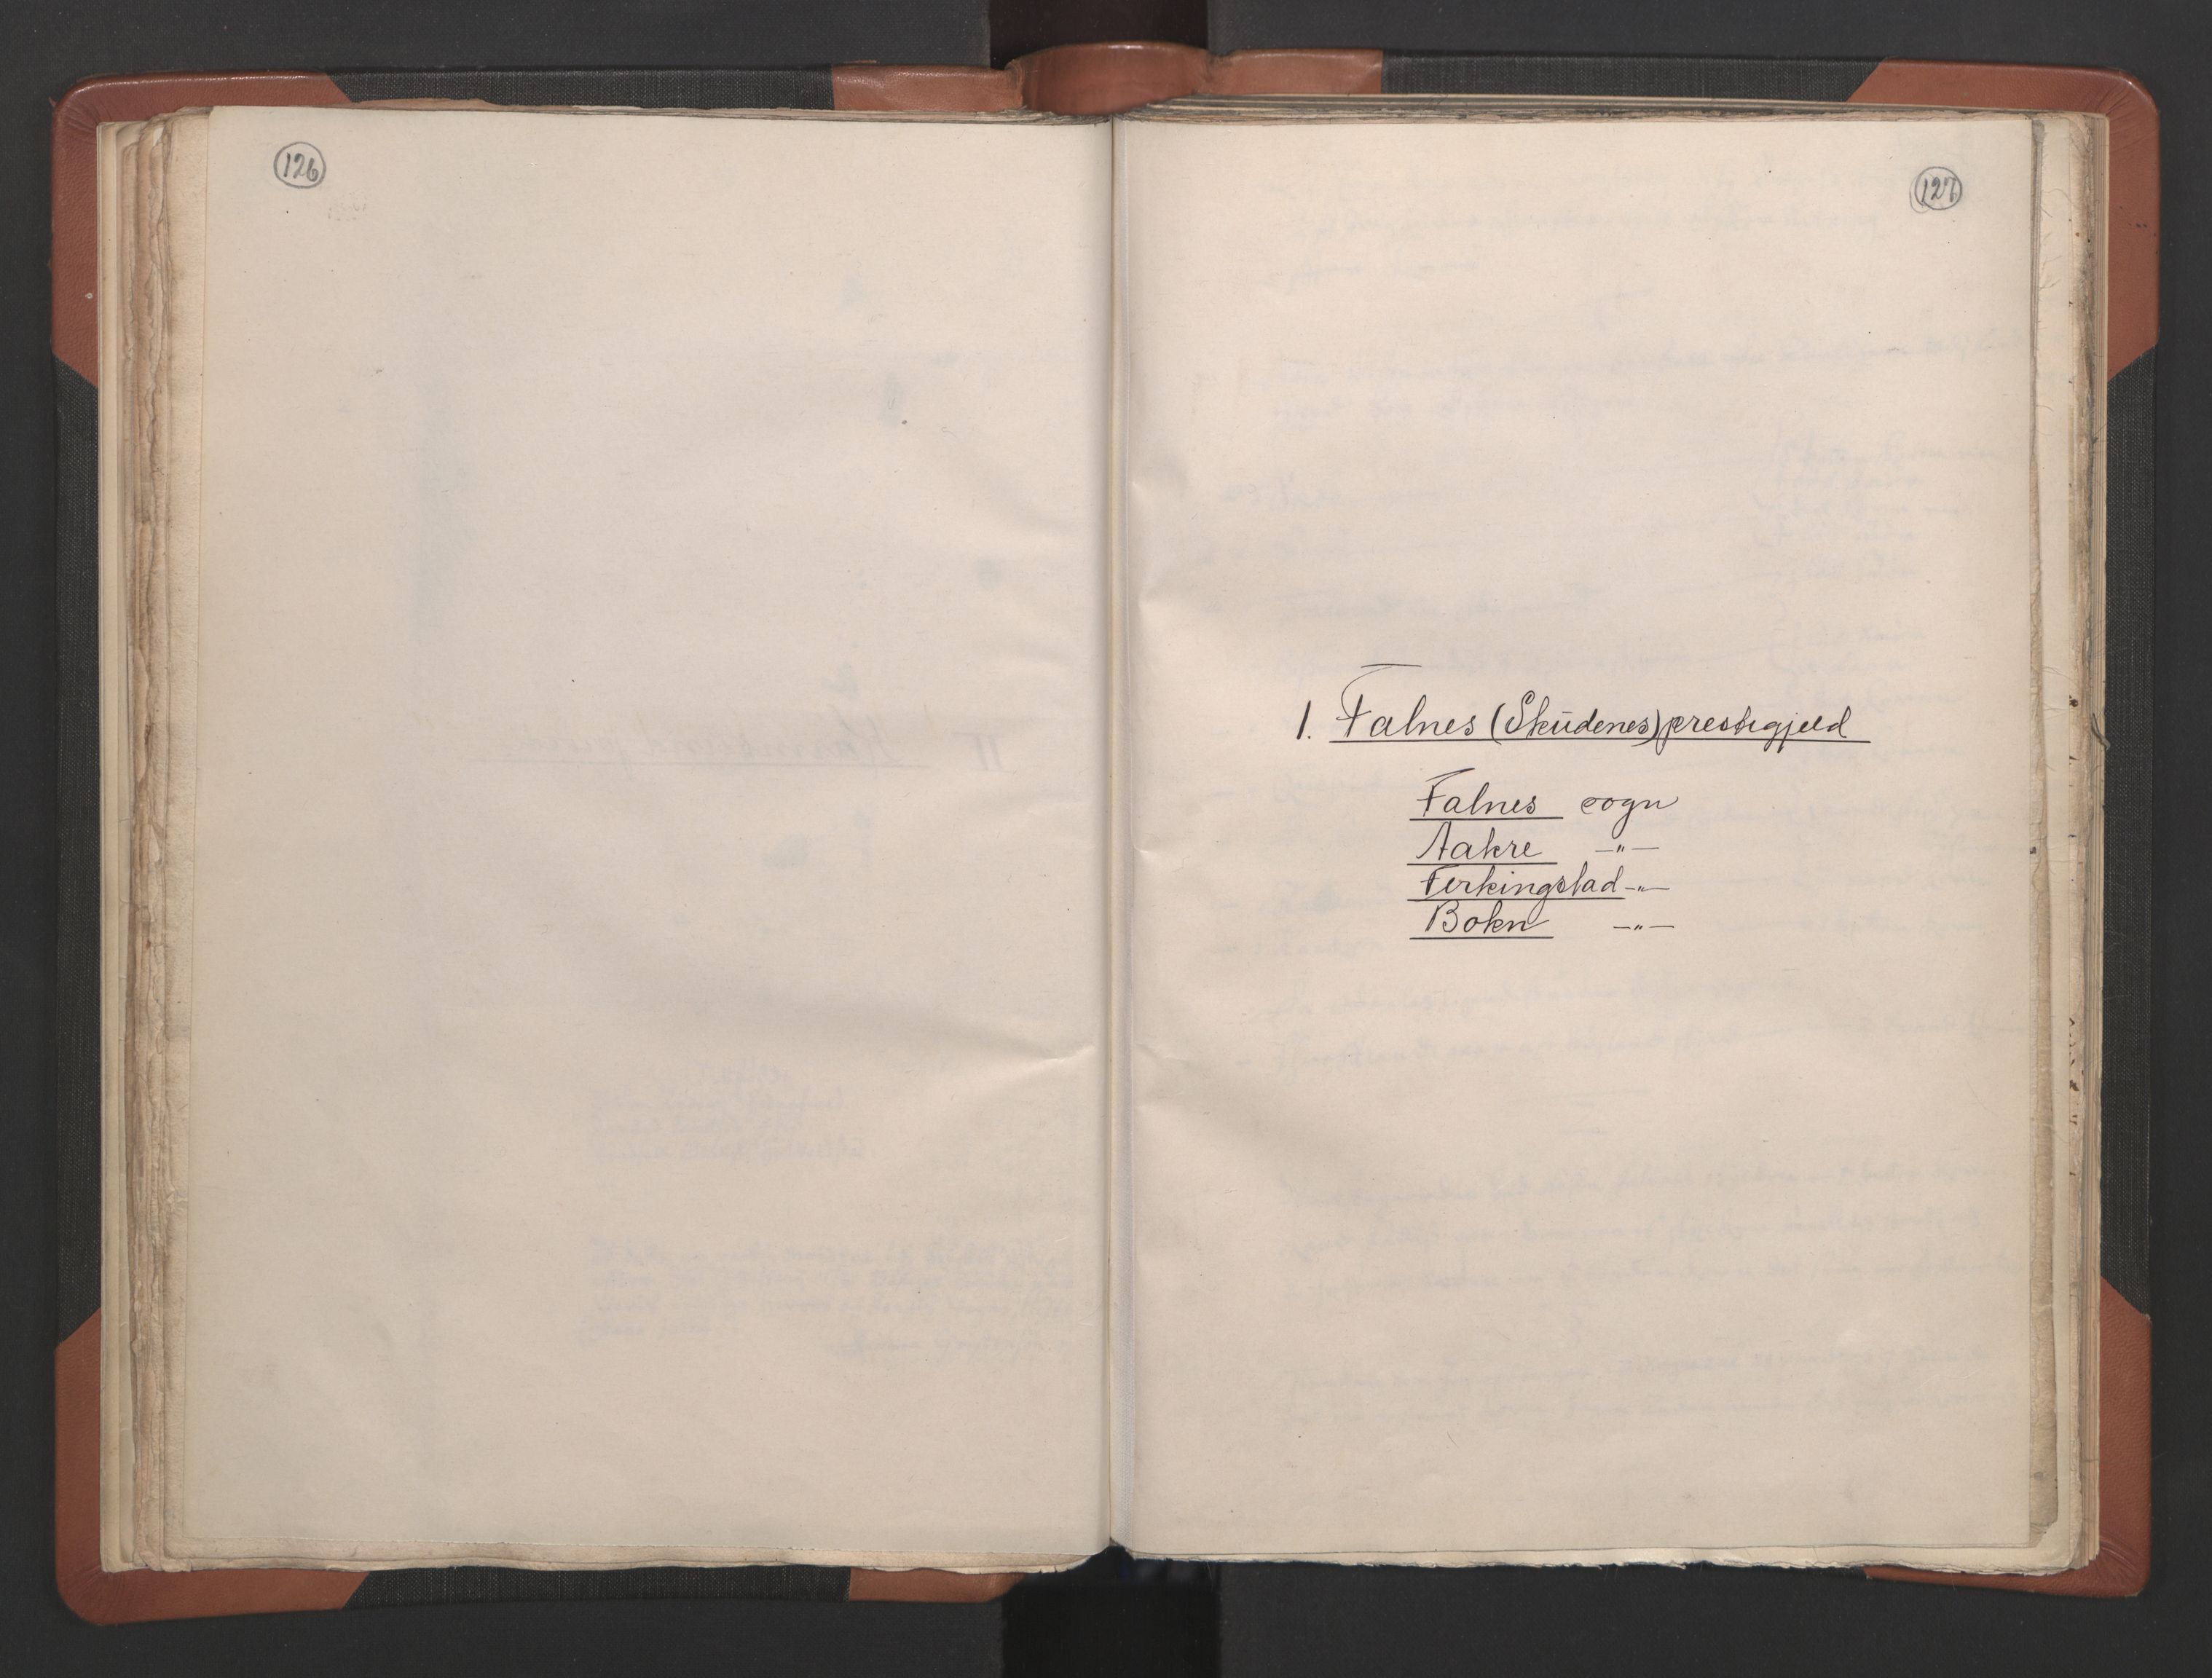 126
127
1. Falnes (Skudenes) prestegjeld
Falnes sogn
Aakre —"—
Ferkingstad —"—
Bokn —"—